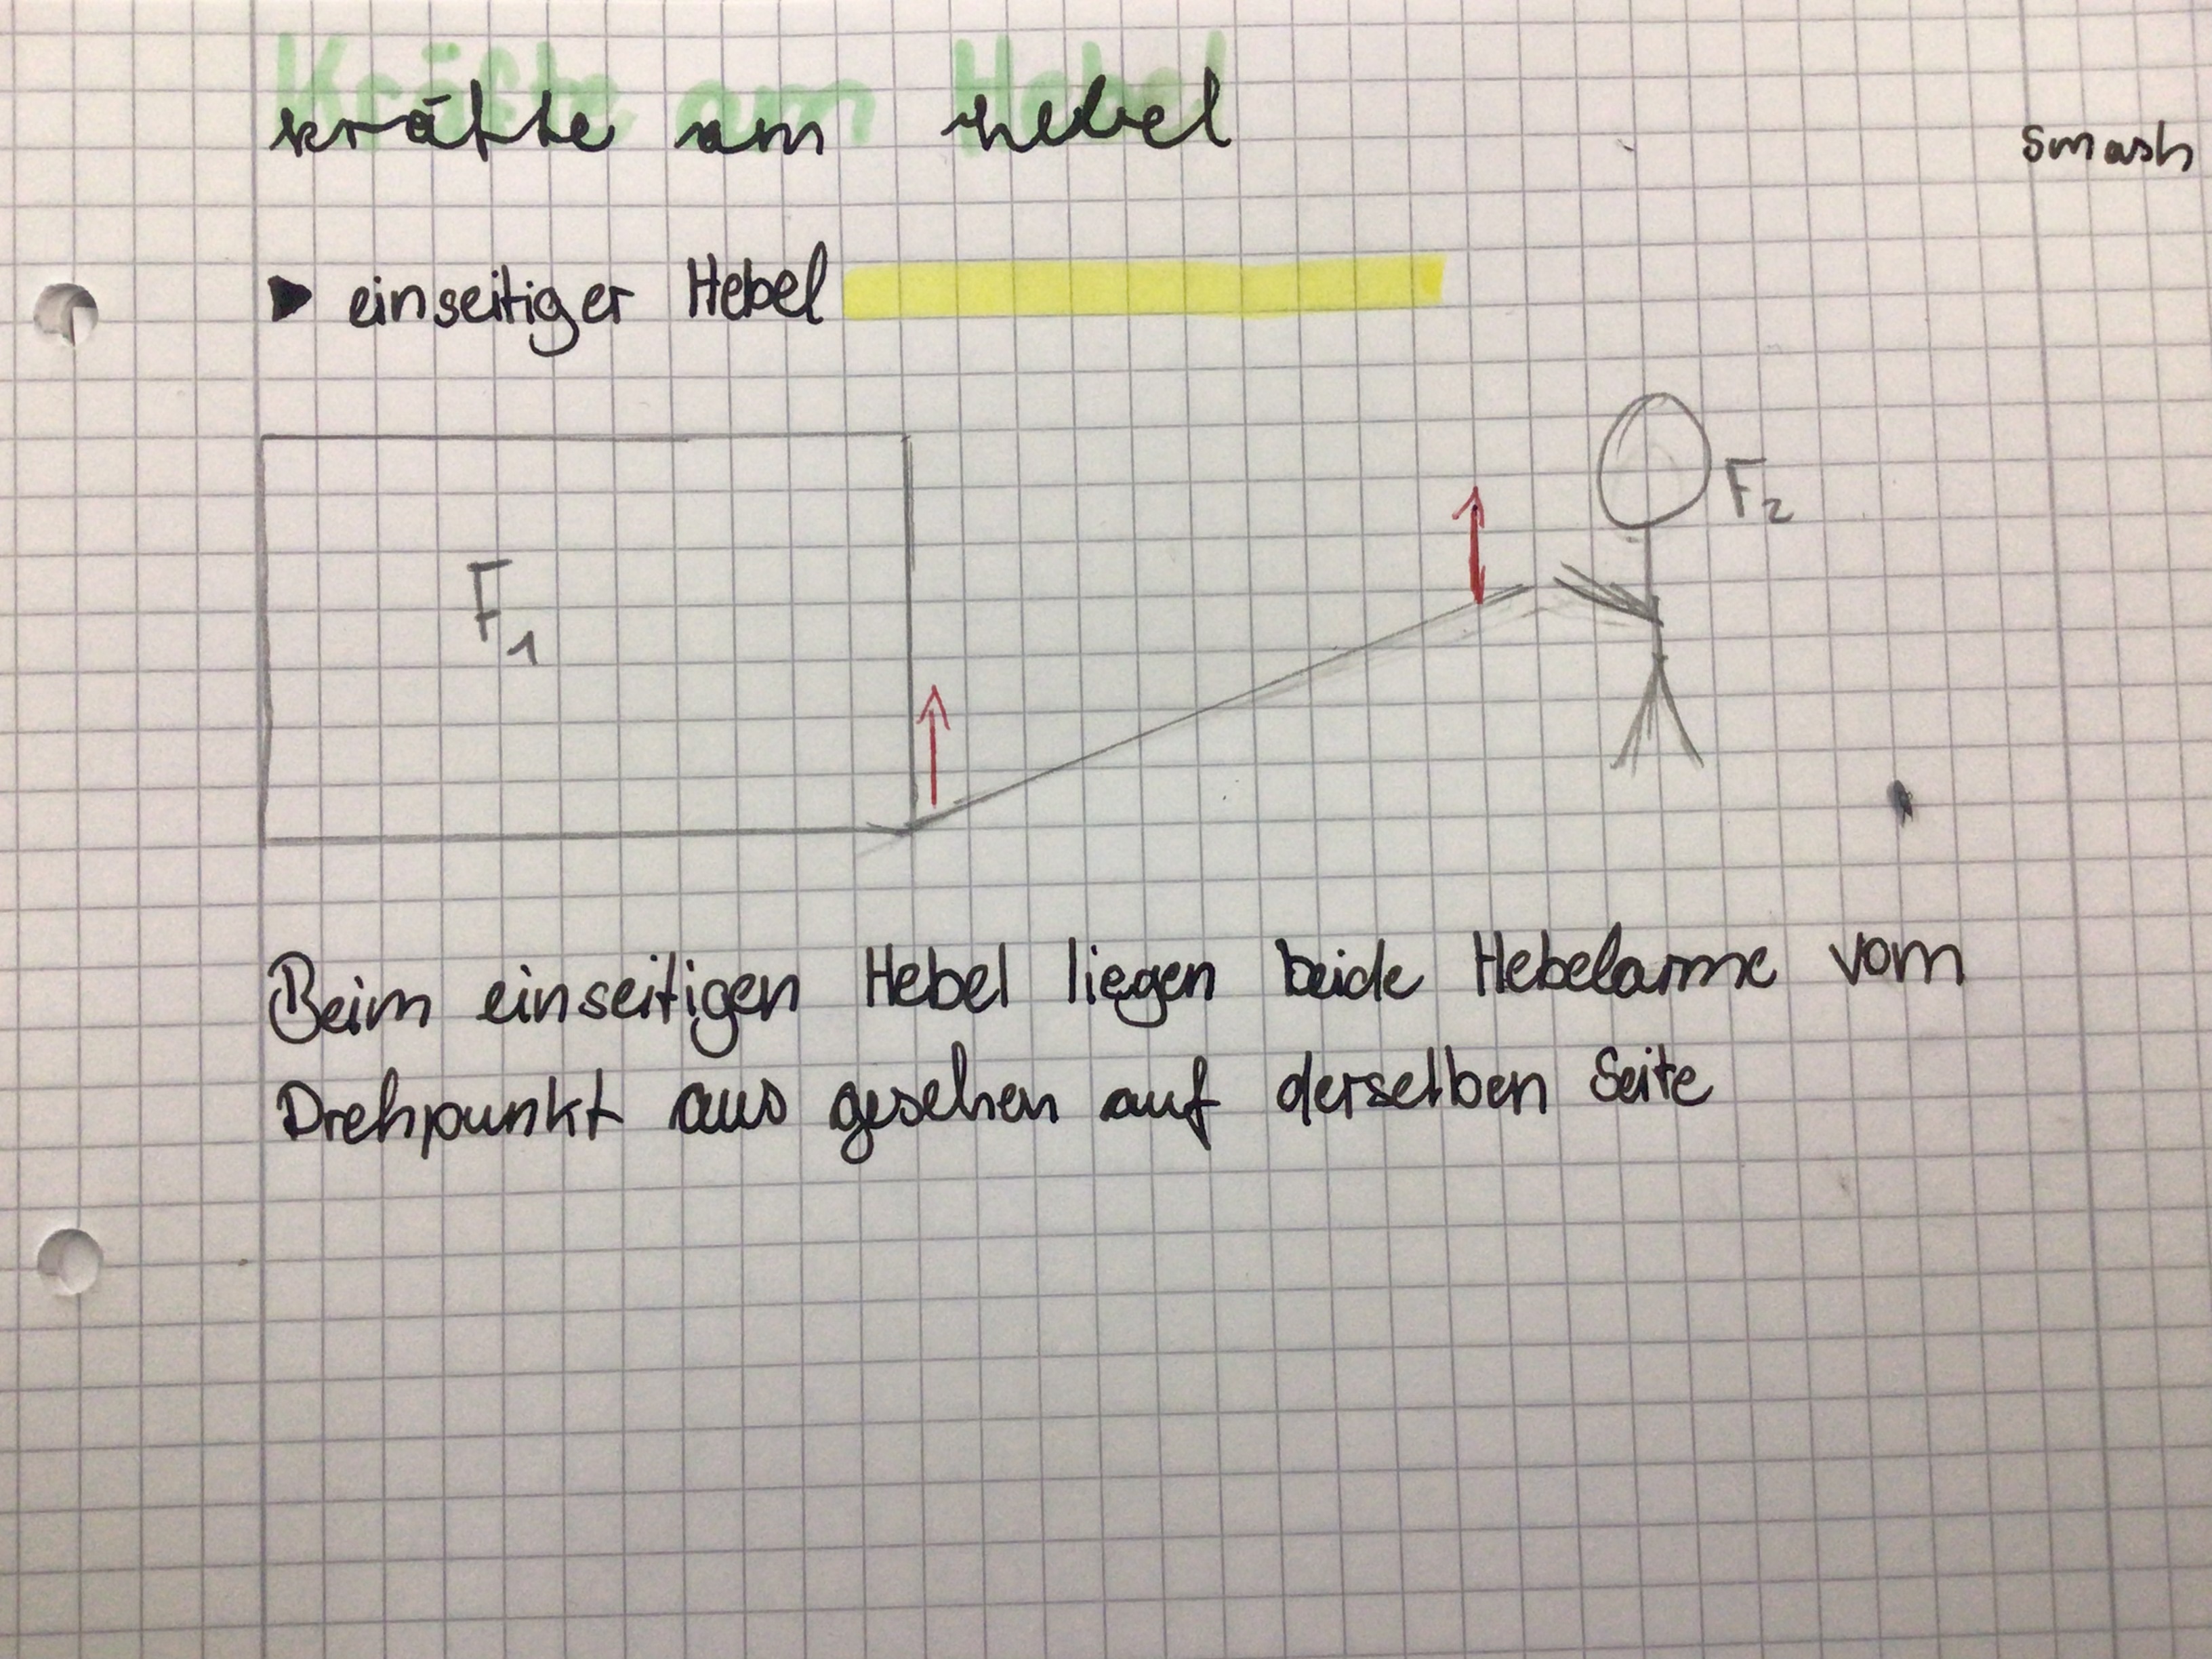 Kräfte am Hebel
smash
einseitiger Hebel
F2
F1
Beim einseitigen Hebel liegen beide Hebelarme vom
Drehpunkt aus gesehen auf derselben Seite